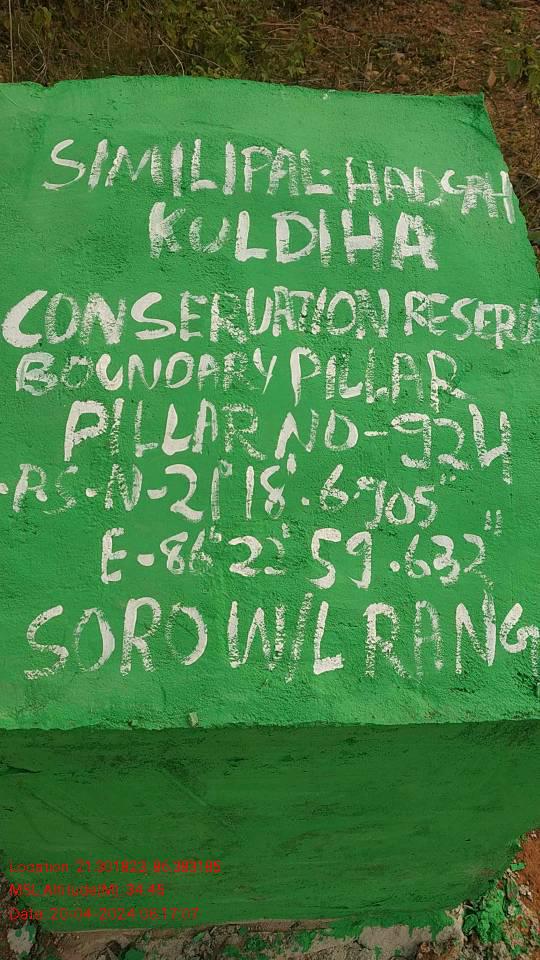 SIMILIPAL-HADGAH
KULDIHA
CONSERVATION RESERV
BOUNDARY PILLAR
PILLAR NO-924
.PS.N-21°18'.6.905"
E-86°22'59.632"
SORO W/L RANG
Location: 21.301823, 86.383185
MSL Altitude(M): 34.45
Date: 20-04-2024 06:17:07